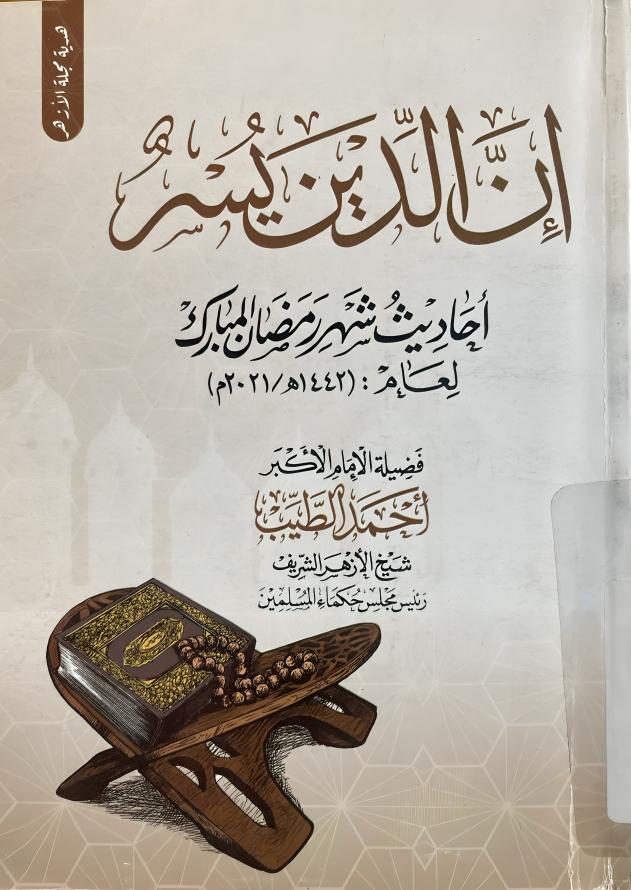 هدية مجلة الأزهر
إنَّ الدِّين يُسْرٌ
أحَادِيثُ شَهْرِ رَمَضَان المبَارك
لِعَام : (١٤٤٢هـ/٢٠٢١م)
فَضِيلة الإمَام الأكْبَر
أحْمَد الطَّيِّب
شَيْخ الأزهَر الشَّرِيف
رَئيس مَجْلِس حُكَماء المُسْلِمِين